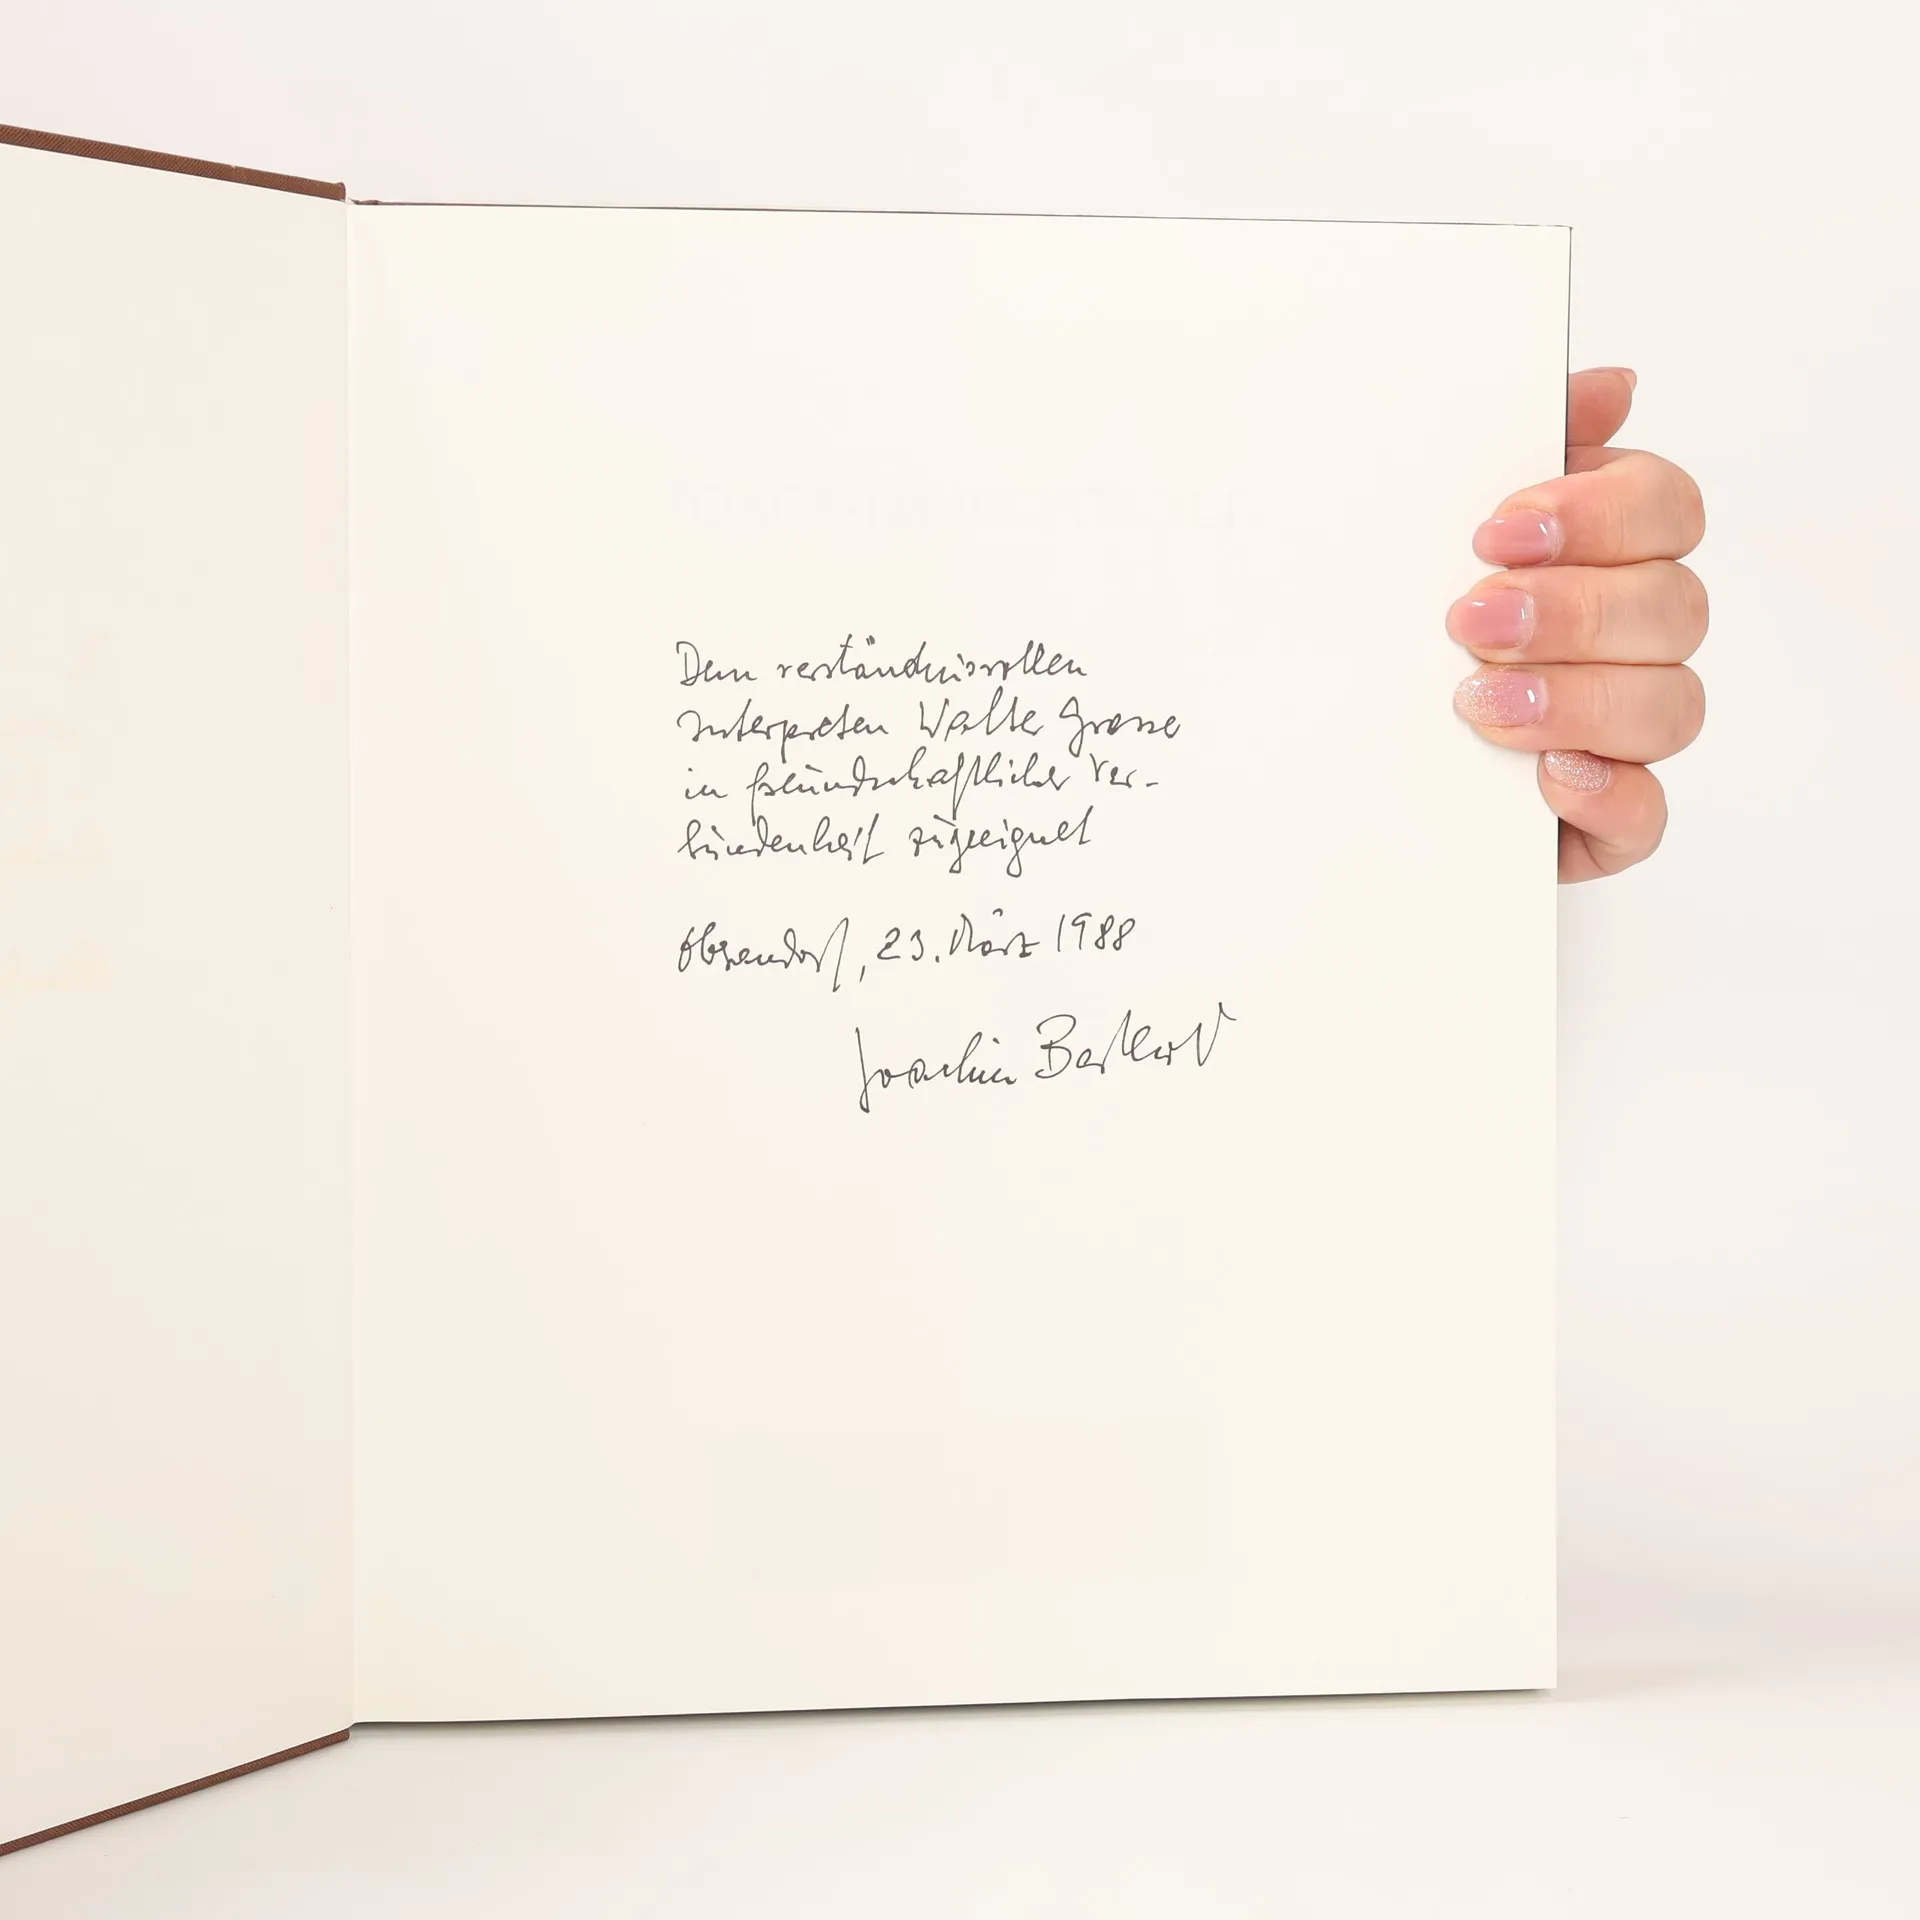 Dem verständnisvollen
Interpreten Walter Grosse
in freundschaftlicher Ver-
bundenheit zugeeignet
23. März 1988
Joachim